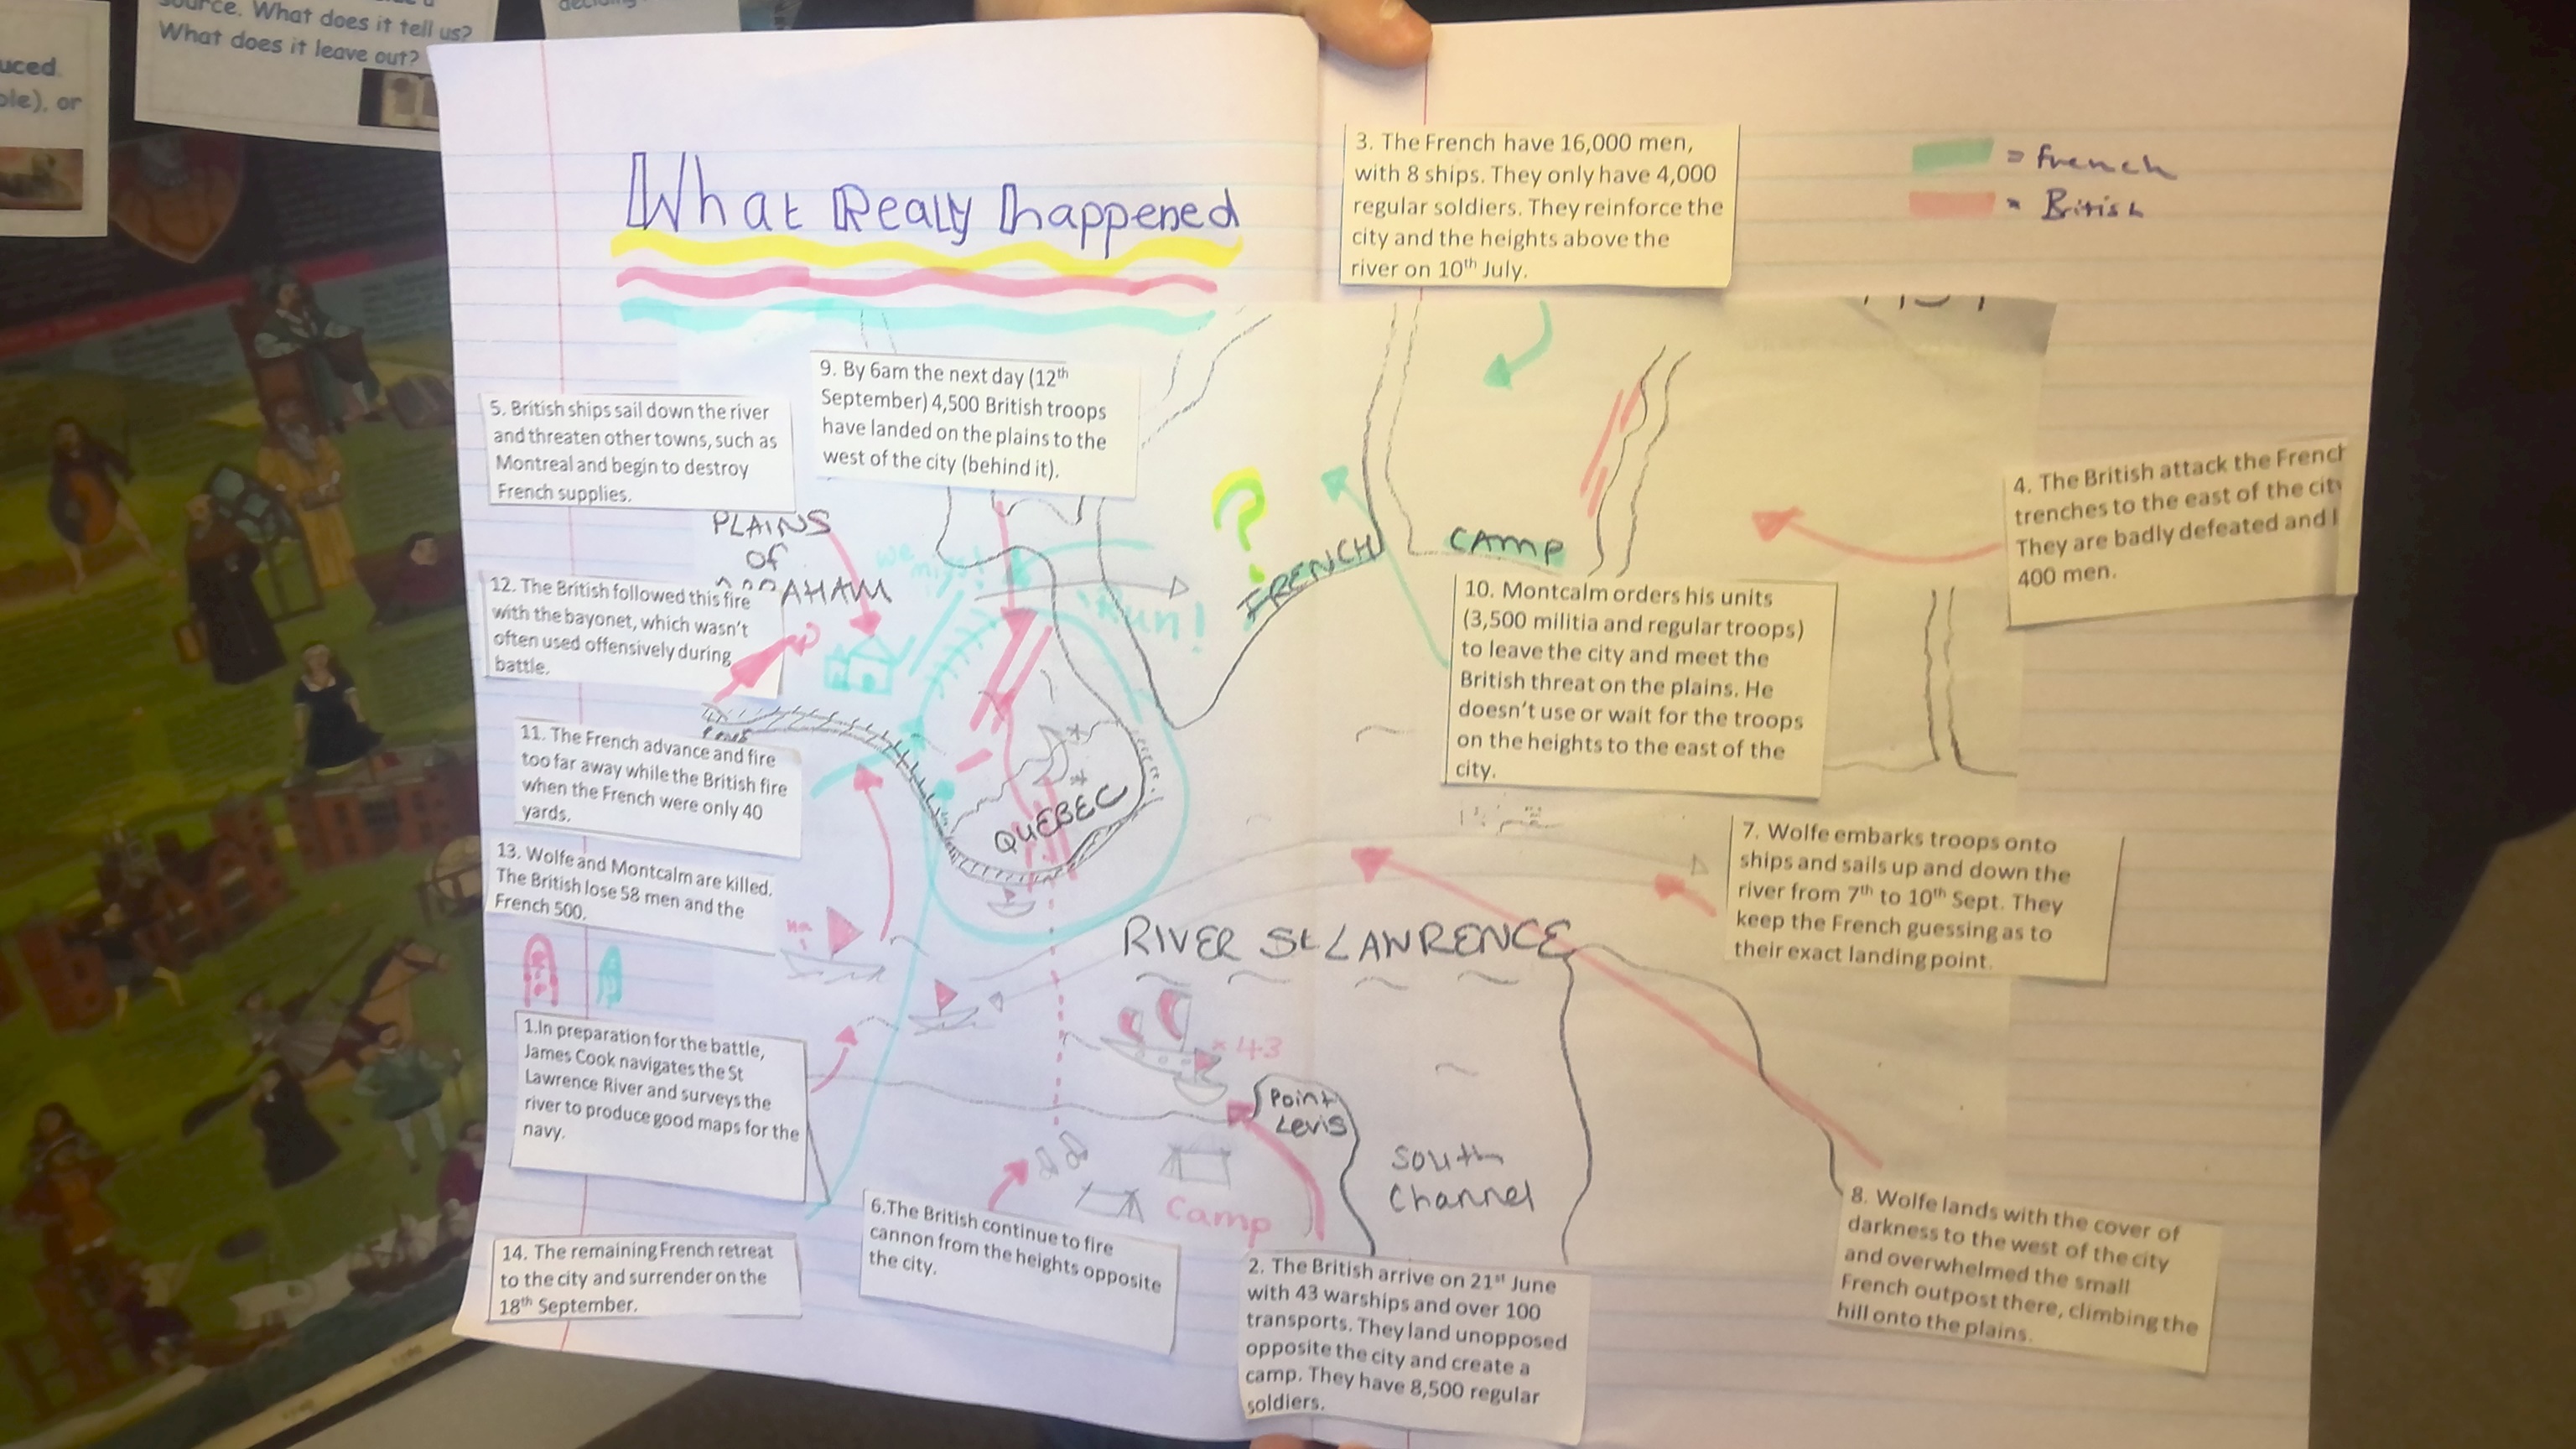 source. What does it tell us?
What does it leave out?
uced.
ple), or
What Realy happened
= French
= British
3. The French have 16,000 men,
with 8 ships. They only have 4,000
regular soldiers. They reinforce the
city and the heights above the
river on 10th July.
9. By 6am the next day (12th
September) 4,500 British troops
have landed on the plains to the
west of the city (behind it).
5. British ships sail down the river
and threaten other towns, such as
Montreal and begin to destroy
French supplies.
4. The British attack the French
trenches to the east of the city
They are badly defeated and l
400 men.
PLAINS
of
?
FRENCH CAMP
we
miss!
Run!
12. The British followed this fire
with the bayonet, which wasn't
often used offensively during
battle.
10. Montcalm orders his units
(3,500 militia and regular troops)
to leave the city and meet the
British threat on the plains. He
doesn't use or wait for the troops
on the heights to the east of the
city.
11. The French advance and fire
too far away while the British fire
when the French were only 40
yards.
QUEBEC
7. Wolfe embarks troops onto
ships and sails up and down the
river from 7th to 10th Sept. They
keep the French guessing as to
their exact landing point.
13. Wolfe and Montcalm are killed.
The British lose 58 men and the
French 500.
RIVER St LAWRENCE
1.In preparation for the battle,
James Cook navigates the St
Lawrence River and surveys the
river to produce good maps for the
navy.
× 43
Point
Levis
South
Channel
Camp
6.The British continue to fire
cannon from the heights opposite
the city.
8. Wolfe lands with the cover of
darkness to the west of the city
and overwhelmed the small
French outpost there, climbing the
hill onto the plains.
14. The remaining French retreat
to the city and surrender on the
18th September.
2. The British arrive on 21st June
with 43 warships and over 100
transports. They land unopposed
opposite the city and create a
camp. They have 8,500 regular
soldiers.